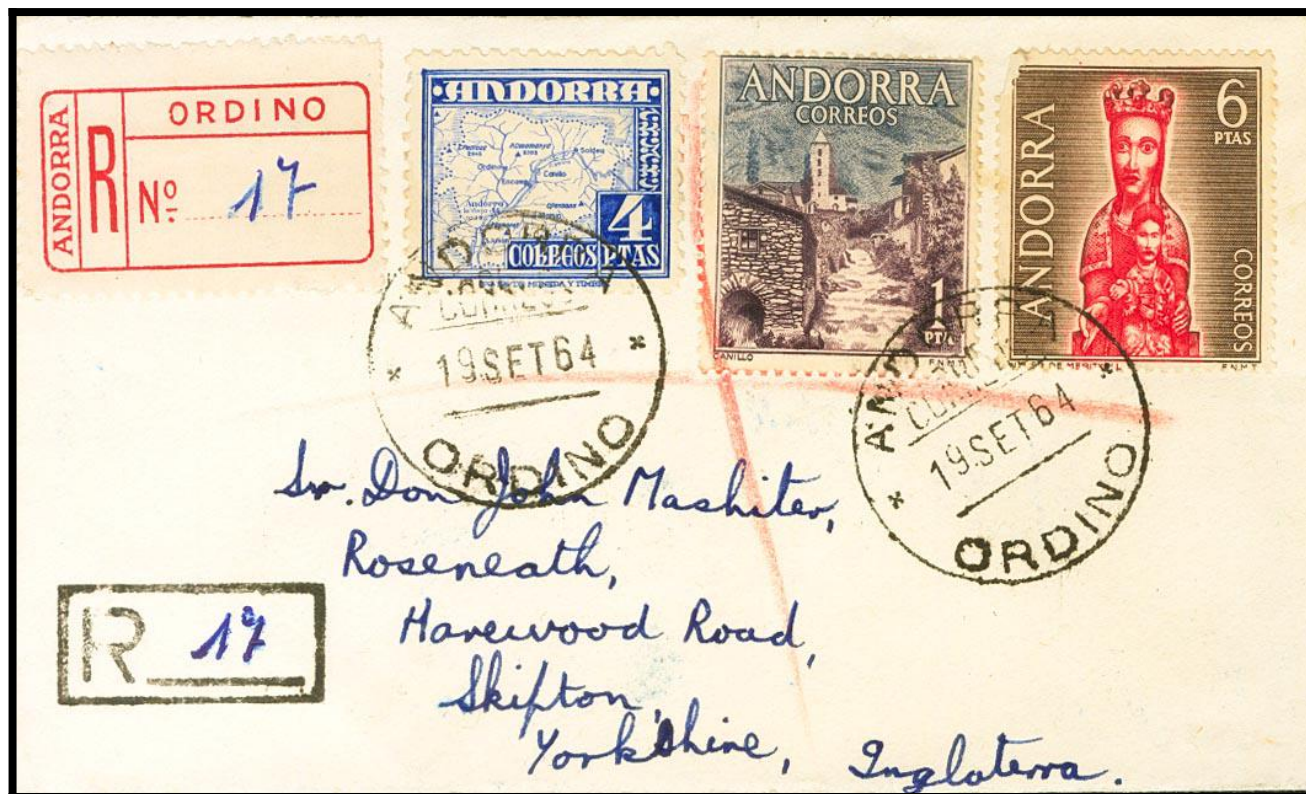 ANDORRA
R
ORDINO
Nº 17
·ANDORRA·
Ordino
Encamp
Canillo
Soldeu
4
CORREOS PTAS
ANDORRA
CORREOS
1
PTA
CANILLO
F.N.M.T.
ANDORRA
6
PTAS
CORREOS
F.N.M.T.
ANDORRA
CORREOS
19 SET 64
ORDINO
ANDORRA
CORREOS
19 SET 64
ORDINO
Sr. Don John Mashiter,
Roseneath,
Harewood Road,
Skipton,
Yorkshire, Inglaterra.
R 17